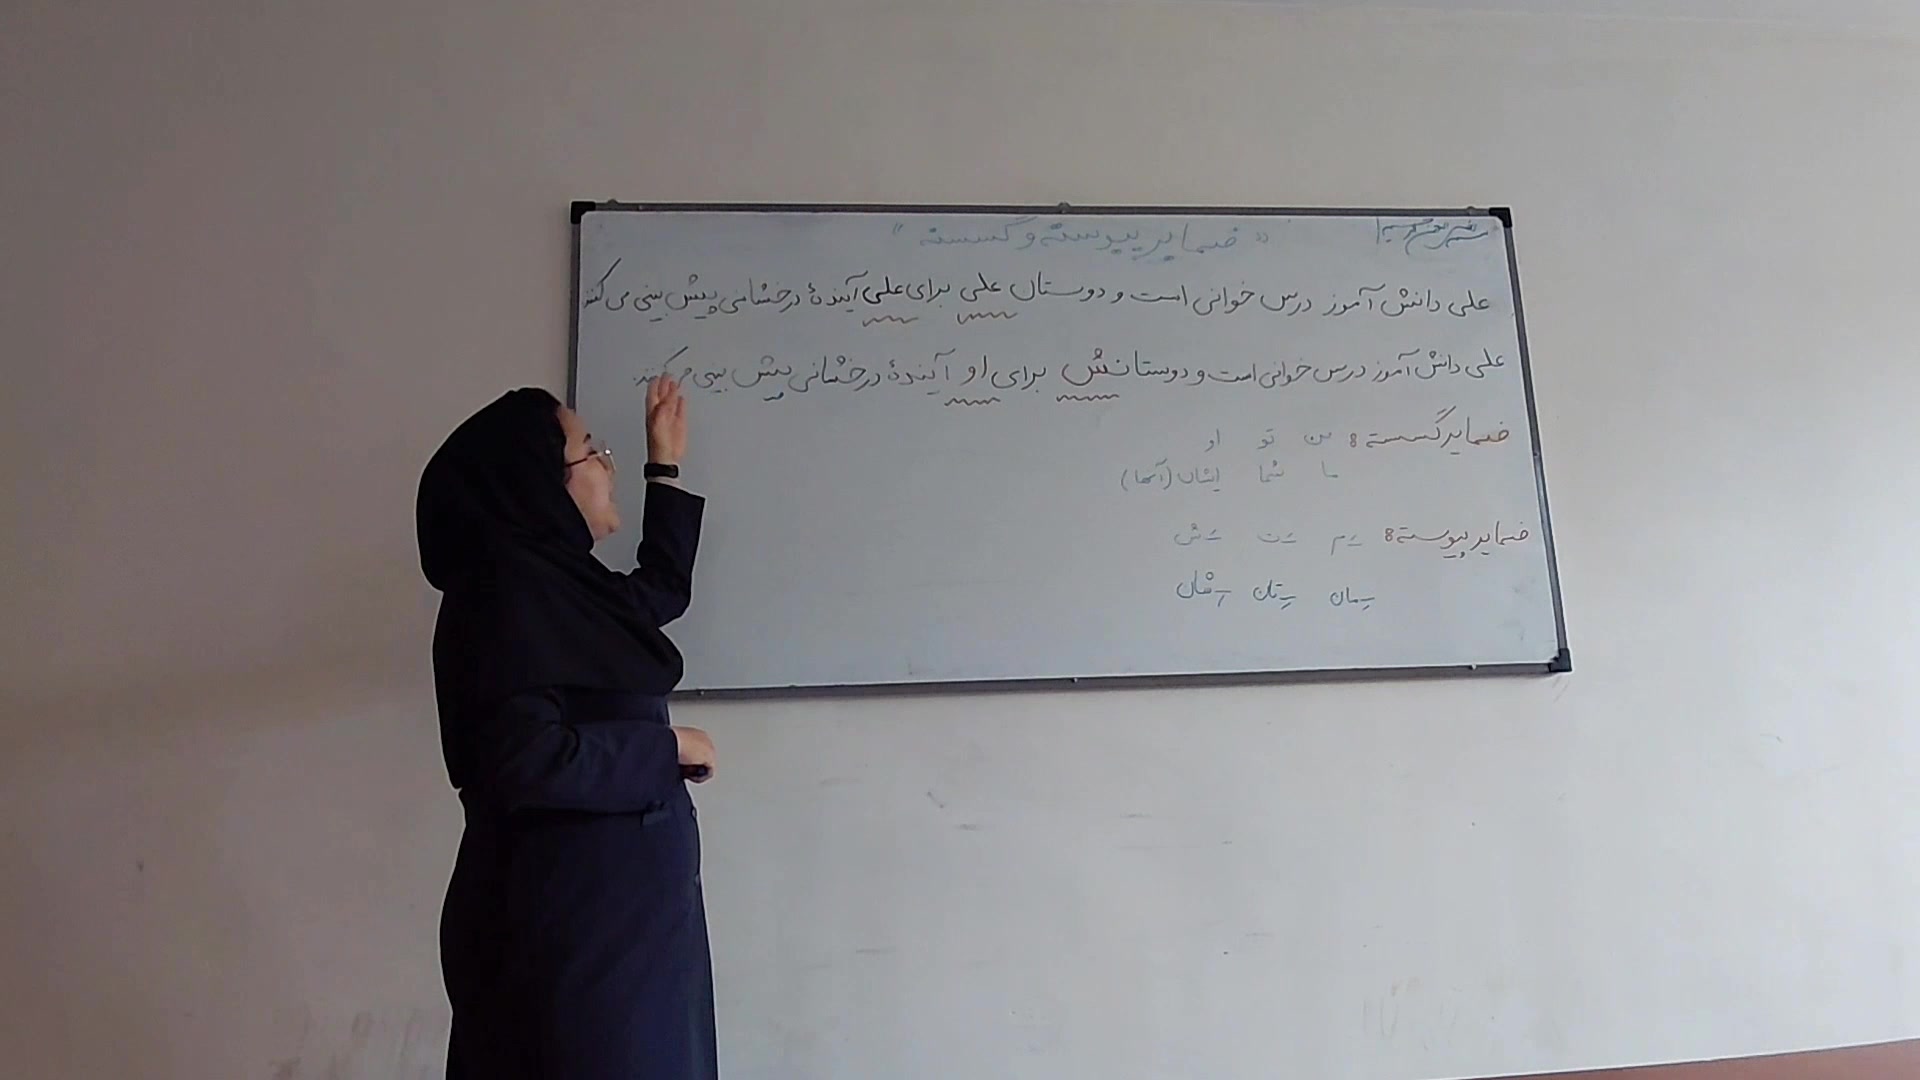 « ضمایر پیوسته و گسسته »
علی دانش آموز درس خوانی است و دوستان علی برای علی آیندهٔ درخشانی پیش بینی می کنند
علی دانش آموز درس خوانی است و دوستانش برای او آیندهٔ درخشانی پیش بینی می کنند.
ضمایر گسسته: من تو او
ما شما ایشان (آنها)
ضمایر پیوسته: ـَ م ـَ ت ـَ ش
ـِ مان ـِ تان ـِ شان